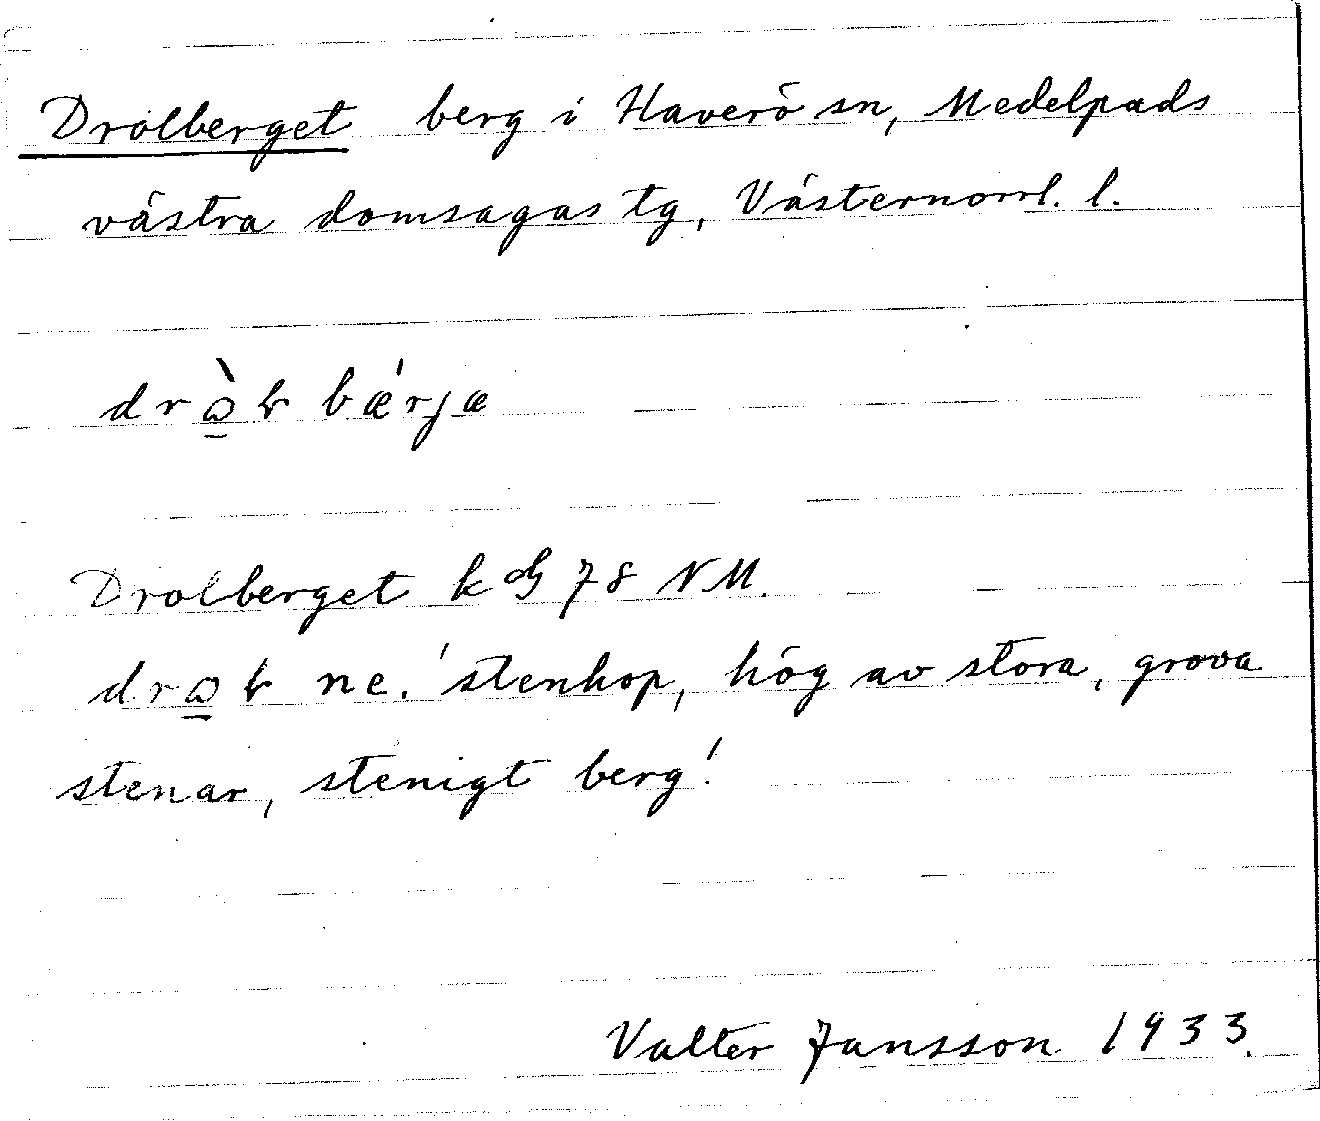 Drolberget berg i Haverö sn, Medelpads
västra domsagas tg, Västernorrl. l.
Drolberget k dG 78 NM.
ne. 'stenhop, hög av stora, grova
stenar, stenigt berg'
Valter Jansson 1933.